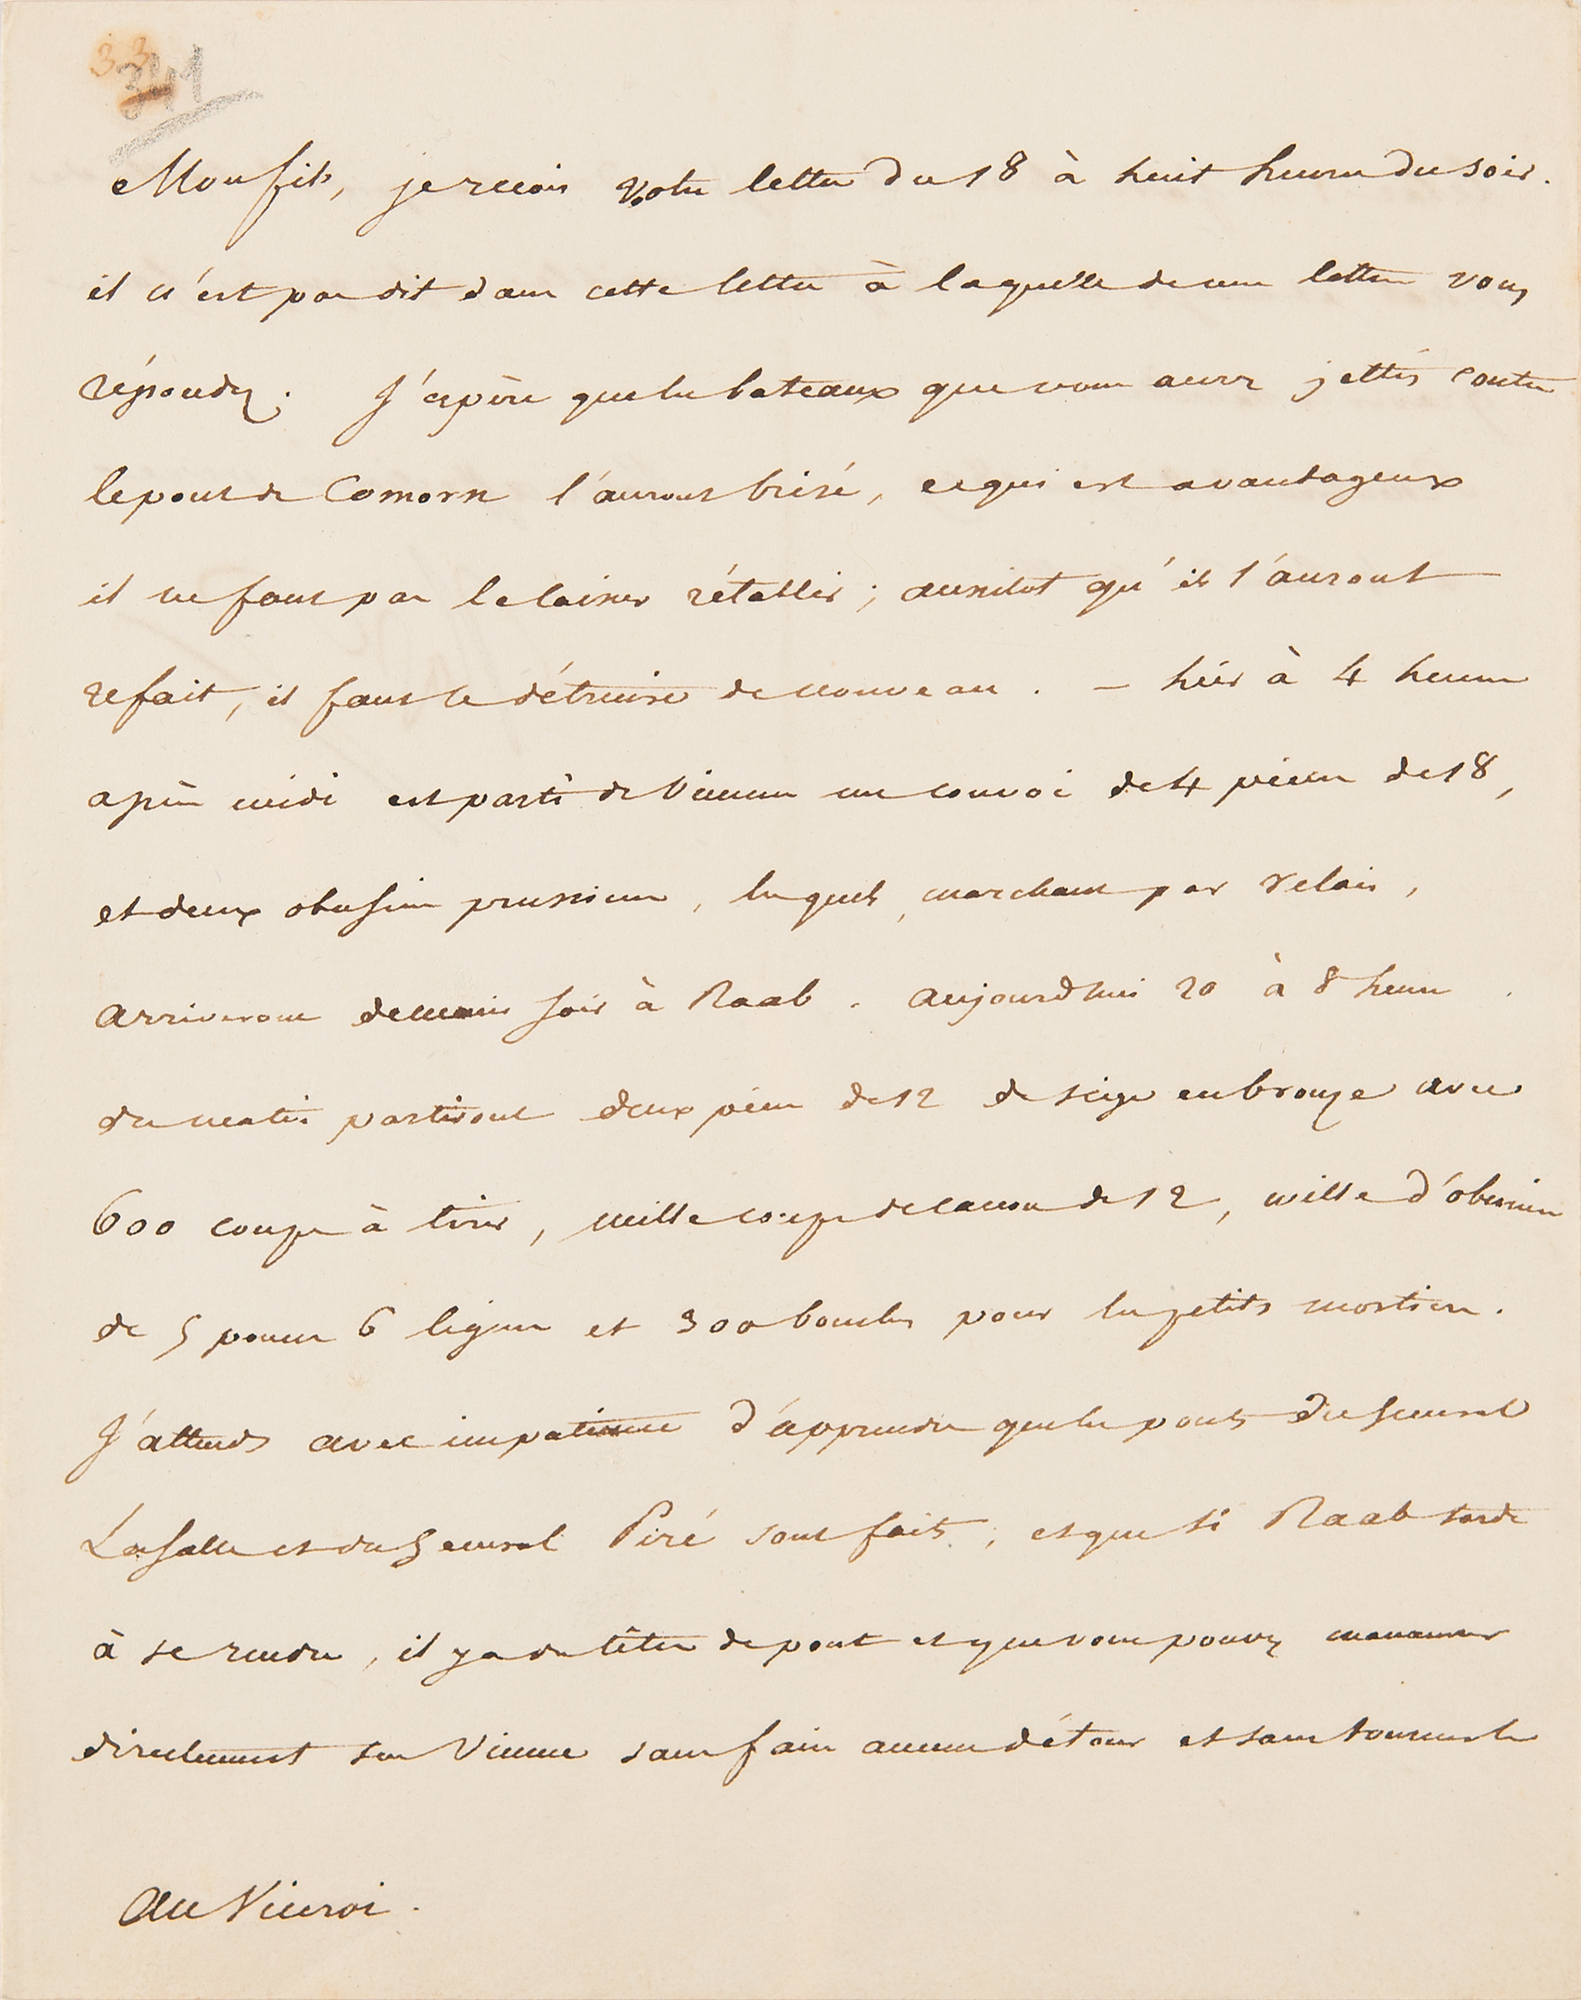 33
341
Mon fils, je reçois votre lettre du 18 à huit heures du soir.
il n'est pas dit dans cette lettre à laquelle de mes lettres vous
répondez. J'espère que les bateaux que vous aurez jettés contre
le pont de Comorn l'auront brisé, ce qui est avantageux
il ne faut pas le laisser rétablir; aussitot qu'ils l'auront
refait, il faut le détruire de nouveau. — hier à 4 heures
après midi est parti de Vienne un convoi de 4 pièces de 18,
et deux obusiers prussiens, lesquels, marchant par relais,
arriveront demain soir à Raab. aujourdhui 20 à 8 heures
du matin partiront deux pièces de 12 de siège en bronze avec
600 coups à tirer, mille coups de canon de 12, mille d'obusiers
de 5 pouces 6 lignes et 300 bombes pour les petits mortiers.
J'attends avec impatience d'apprendre que les ponts du Général
Lasalle et du Général Piré sont faits; et que si Raab tarde
à se rendre, il y a des têtes de pont et que vous pouvez manœuvrer
directement sur Vienne sans faire aucun détour et sans tourner le
Au Viceroi.